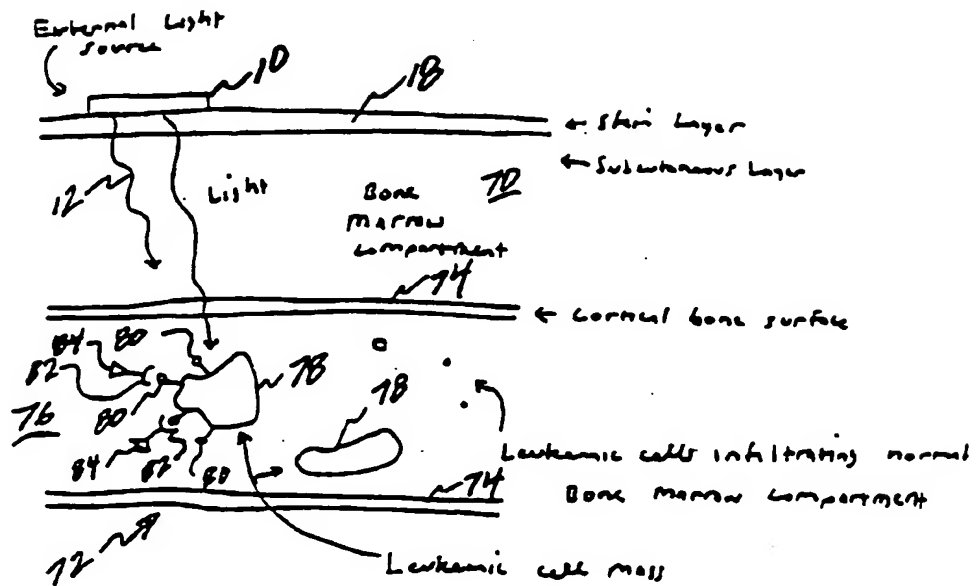 External Light
source
10
18
← Skin Layer
← Subcutaneous Layer
70
12
Light
Bone
Marrow
compartment
74
← Cortical bone surface
84
80
82
78
76
80
78
84
82
80
Leukemic cells infiltrating normal
Bone Marrow compartment
74
72
Leukemic cell mass